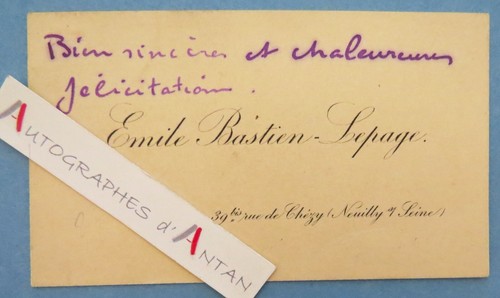 Bien sincères et chaleureuses
félicitations.
Emile Bastien-Lepage.
39bis rue de Chézy (Neuilly s/ Seine)
AUTOGRAPHES d'ANTAN